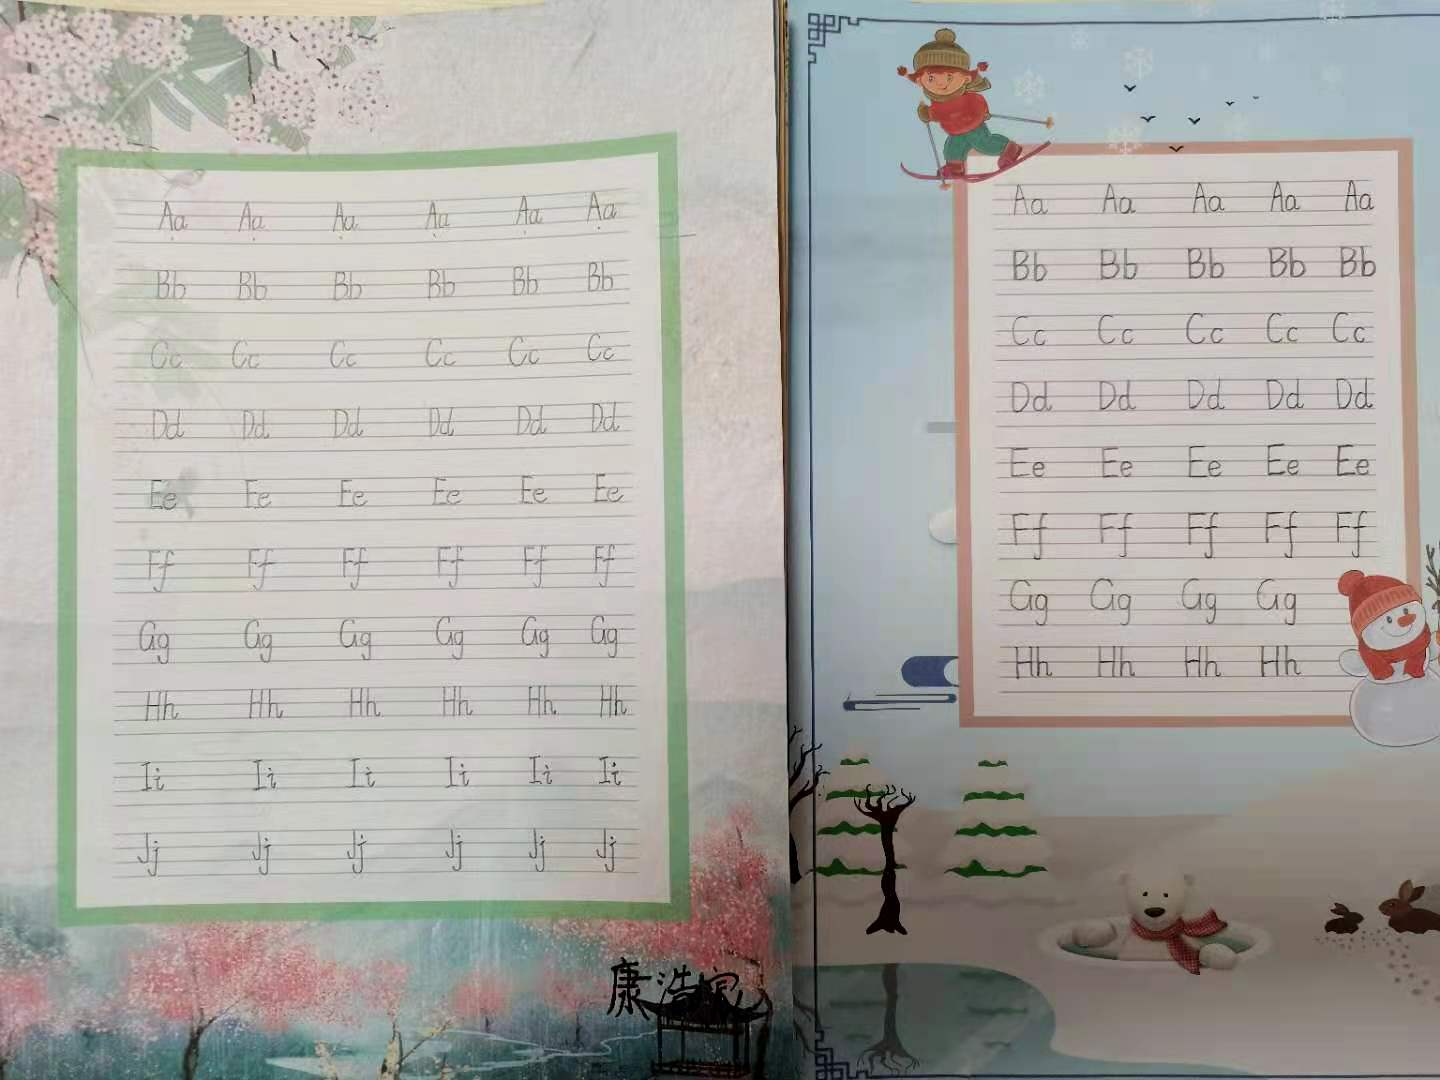 Aa Aa Aa Aa Aa Aa
Bb Bb Bb Bb Bb Bb
Cc Cc Cc Cc Cc Cc
Dd Dd Dd Dd Dd Dd
Ee Ee Ee Ee Ee Ee
Ff Ff Ff Ff Ff Ff
Gg Gg Gg Gg Gg Gg
Hh Hh Hh Hh Hh Hh
Ii Ii Ii Ii Ii Ii
Jj Jj Jj Jj Jj Jj
康浩
Aa Aa Aa Aa Aa
Bb Bb Bb Bb Bb
Cc Cc Cc Cc Cc
Dd Dd Dd Dd Dd
Ee Ee Ee Ee Ee
Ff Ff Ff Ff Ff
Gg Gg Gg Gg
Hh Hh Hh Hh